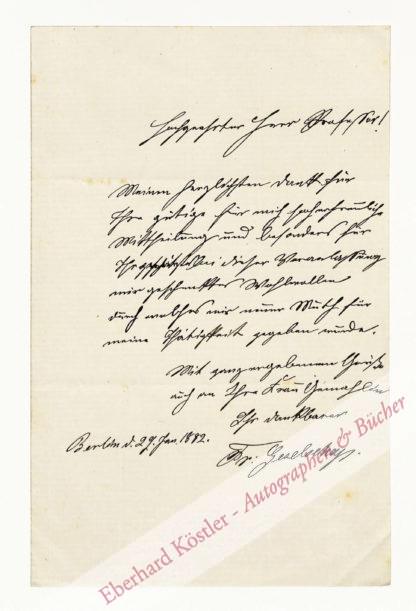 Hochgeehrter Herr Professor!
Meinen herzlichsten Dank für
Ihre gütige für mich so erfreuliche
Mittheilung und besonders für
Ihr bei dieser Veranlassung
mir geschenktes Wohlwollen
durch welches mir neuer Muth für
meine Thätigkeit gegeben wurde.
Mit ganz ergebenem Gruße
auch an Ihre Frau Gemahlin
Ihr dankbarer
Fr. Geselschap.
Berlin d. 29. Jan. 1882.
Eberhard Köstler - Autographen & Bücher